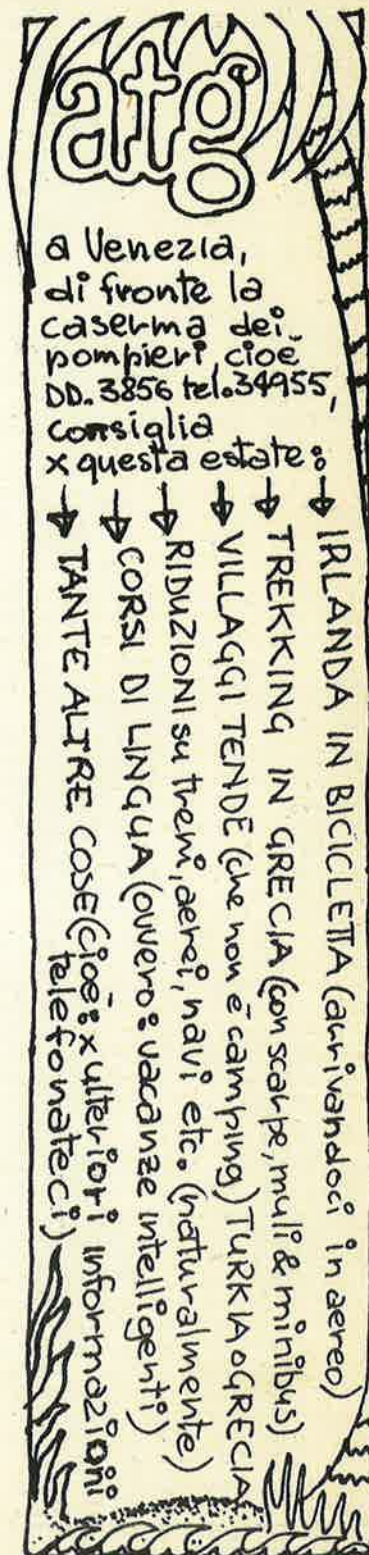 atg
a Venezia,
di fronte la
caserma dei
pompieri, cioe
DD. 3856 tel. 34955,
consiglia
x questa estate:
→ IRLANDA IN BICICLETTA (arrivandoci in aereo)
→ TREKKING IN GRECIA (con scarpe, muli & minibus)
→ VILLAGGI TENDE (che non è camping) TURKIA O GRECIA
→ RIDUZIONI su treni, aerei, navi etc. (naturalmente)
→ CORSI DI LINGUA (ovvero: vacanze intelligenti)
→ TANTE ALTRE COSE (cioè: x ulteriori informazioni
telefonateci)